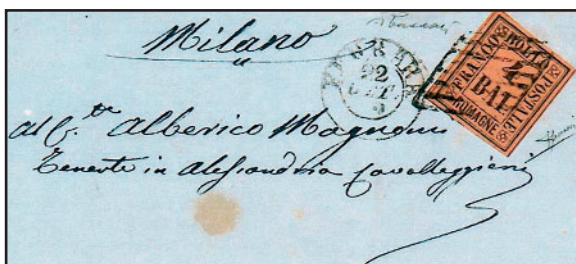 Milano
FERRARA
22
OTT
FRANCO BOLLO POSTALE ROMAGNE
BAI
al C.te Alberico Magnoni
Tenente in Alessandria Cavalleggieri